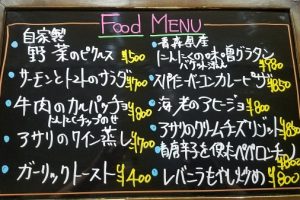 Food MENU
自家製
野菜のピクルス ¥500
サーモンとトマトのサラダ ¥700
牛肉のカルパッチョ
にんにくチップのせ ¥800
アサリのワイン蒸し ¥700
ガーリックトースト ¥400
青森県産
にんにくの味噌グラタン
¥780
スパイシーベーコンカレーピザ ¥850
海老のアヒージョ ¥800
アサリのクリームチーズリゾット ¥850
青唐辛子を使ったペペロンチーノ
¥800
レバニラもやし炒め ¥800